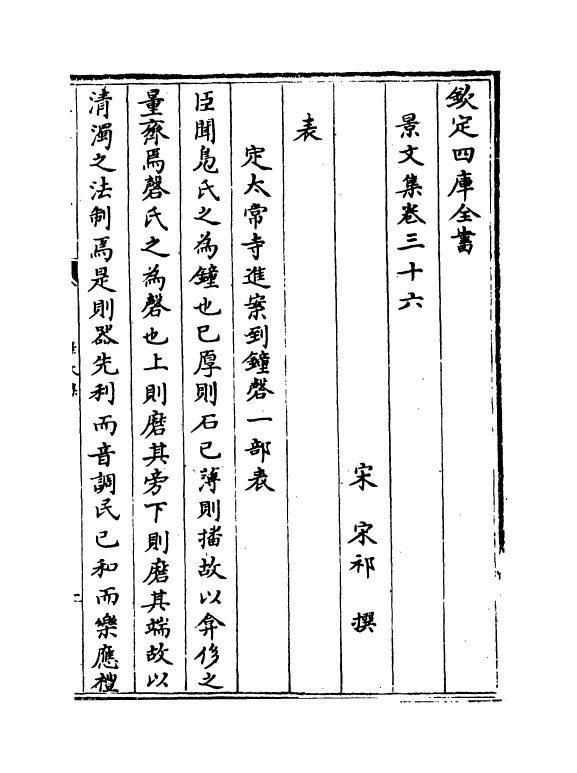 欽定四庫全書
景文集卷三十六
宋 宋祁 撰
表
定太常寺進案到鐘磬一部表
臣聞鳬氏之為鐘也已厚則石已薄則播故以弇侈之
量齊焉磬氏之為磬也上則磨其旁下則磨其端故以
清濁之法制焉是則器先利而音調民已和而樂應禮